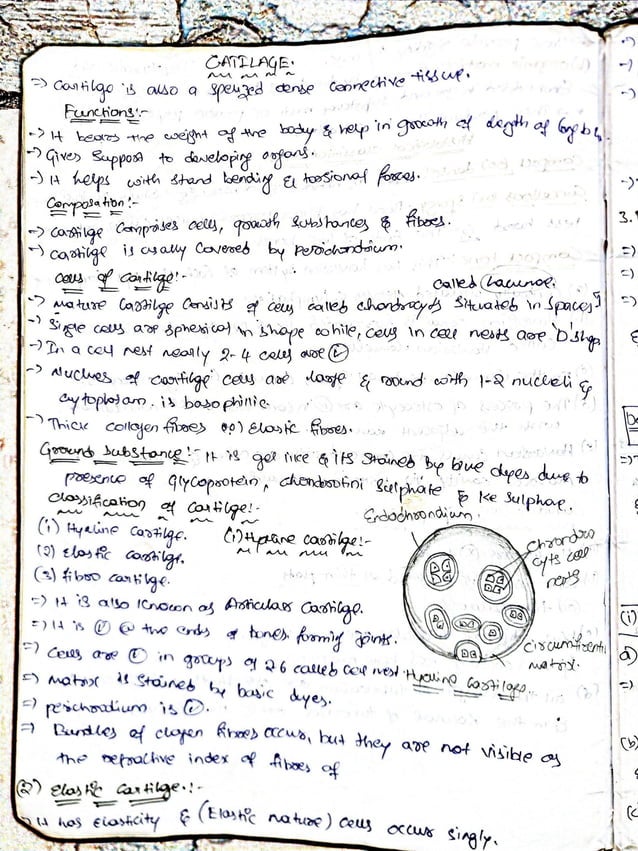 CATILAGE.
=> Cartilge is also a spelized dense connective tissue.
Functions:-
-> It bears the weight of the body & help in growth of length of long b
-> Gives Support to developing organs.
-> It helps with stand bending & torsional forces.
Composation:-
-> Cartilge Comprises cells, growth substances & fibres.
-> Cartilge is usally Covered by perichondrium.
Cells of Cartilge:-
called Lacunae.
-> Mature Cartilge Consists of cells called chondrocyts Situated in spaces
-> Single cells are spherical in shape while, cells in cell nests are 'D' shape
-> In a cell nest nearly 2-4 cells are
-> Nucleus of cartilge cells are large & round with 1-2 nucleli &
cytoplasm is basophillic.
-> Thick collagen fibres (or) Elastic fibres.
Ground Substance:- It is gel like & its stained by blue dyes due to
presence of Glycoprotein, chondrotini Sulphate & Ke Sulphate.
Classification of Cartilge:-
(1) Hyaline Cartilge.
(2) Elastic cartilge.
(3) fibro cartilge.
(1) Hyaline cartilge:-
Endochrondium.
Chrondro
cyts cell
nests
Circumfirenti
matrix.
Hyaline Cartilage.
=> It is also Known as Articular Cartilge.
=> It is @ the ends of bones forming joints.
=> Cells are in groups of 26 called Cell nest
=> Matrix is Stained by basic dyes.
=> perichondium is
=> Bundles of clogen fibres occur, but they are not visible as
the refractive index of fibres of
(2) Elastic Cartilge.:-
It has Elasticity & (Elastic nature) Cells occur singly.
3.
(i)
(b)